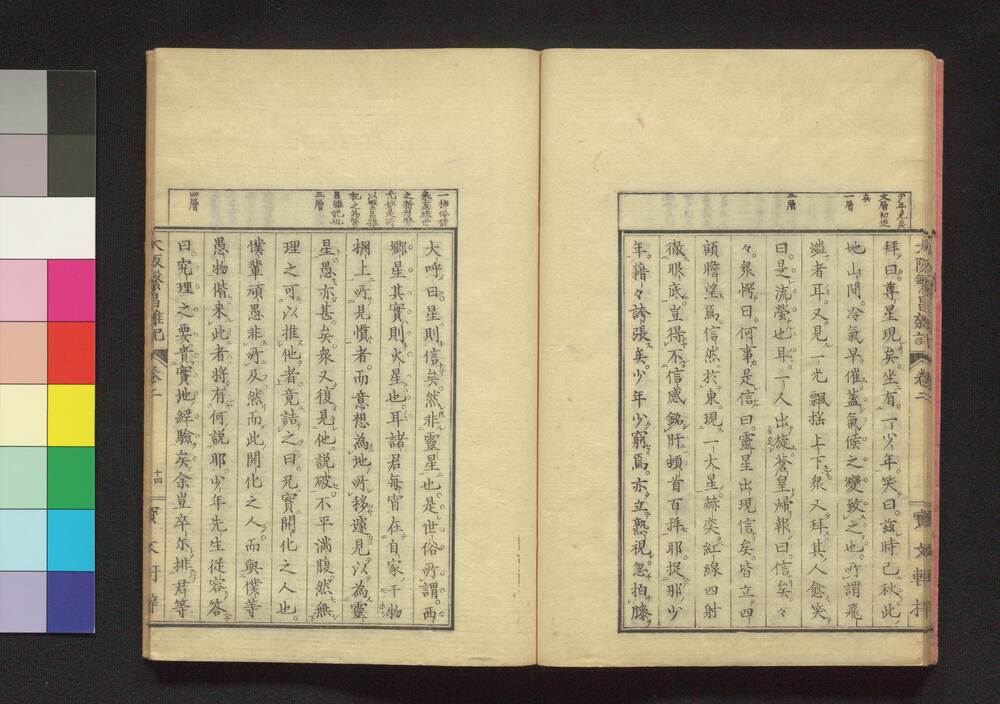 少年見矣
文層初進
矣
一層
二層
拜曰尊星現矣坐有一少年笑曰茲時已秋此
地山間冷氣早催蓋氣候之變致之也所謂飛
燐者耳又見一光飄搖上下衆又拜其人愈笑
曰是流螢也耳一人出旋蒼皇歸報曰信矣々
々衆愕曰何事是信曰靈星出現信矣皆立四
顧瞻望焉信然於東現一大星赫奕紅綠四射
徹眼底豈得不信感銘肝頓首百拜耶捉那少
年藉々誇張矣少年少窮焉亦立熟視忽拍膝
一種俗話
以繁昌雜
記之為繁
昌雜記也
三層
四層
大呼曰星則信矣然非靈星也是世俗所謂西
郷星其實則火星也耳諸君每宵在自家干物
棚上所見慣者而意想為地所移遽見以為靈
星愚亦甚矣衆又復見他說破不平滿腹然無
理之可以推他者竟詰之曰兄實開化之人也
僕輩頑愚非所及然而此開化之人而與僕等
愚物偕來此者將有何說耶少年先生從容答
曰究理之要貴實地經驗矣余豈卒尓排君等
大阪繁昌雜記
卷二
十四
寶文軒梓